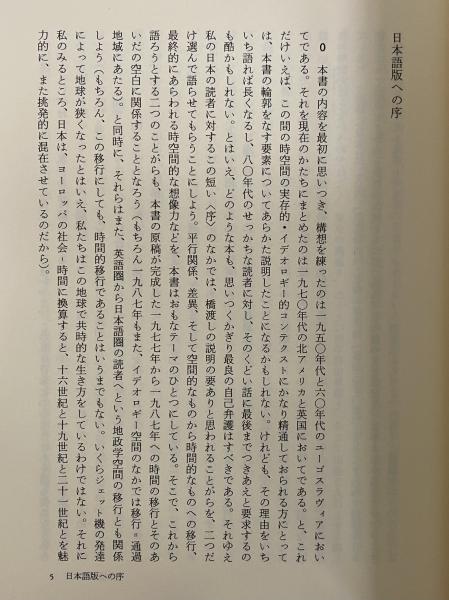 日本語版への序
0 本書の内容を最初に思いつき、構想を練ったのは一九五〇年代と六〇年代のユーゴスラヴィアにおい
てである。それを現在のかたちにまとめたのは一九七〇年代の北アメリカと英国においてである。と、これ
だけいえば、この間の時空間の実存的・イデオロギー的コンテクストにかなり精通しておられる方にとって
は、本書の輪郭をなす要素についてあらかた説明したことになるかもしれない。けれども、その理由をいち
いち語れば長くなるし、八〇年代のせっかちな読者に対し、そのくどい話に最後までつきあえと要求するの
も酷かもしれない。とはいえ、どのような本も、思いつくかぎり最良の自己弁護はすべきである。それゆえ
私の日本の読者に対するこの短い〈序〉のなかでは、橋渡しの説明の要ありと思われることがらを、二つだ
け選んで語らせてもらうことにしよう。平行関係、差異、そして空間的なものから時間的なものへの移行、
最終的にあらわれる時空間的な想像力などを、本書はおもなテーマのひとつにしている。そこで、これから
語ろうとする二つのことがらも、本書の原稿が完成した一九七七年から一九八七年への時間の移行とそのあ
いだの空白に関係することとなろう（もちろん一九八七年もまた、イデオロギー空間のなかでは移行＝通過
地域にあたる）。と同時に、それらはまた、英語圏から日本語圏の読者へという地政学空間の移行とも関係
しよう（もちろん、この移行にしても、時間的移行であることはいうまでもない。いくらジェット機の発達
によって地球が狭くなったとはいえ、私たちはこの地球で共時的な生き方をしているわけではない。それに
私のみるところ、日本は、ヨーロッパの社会‐時間に換算すると、十六世紀と十九世紀と二十一世紀とを魅
力的に、また挑発的に混在させているのだから）。
5 日本語版への序